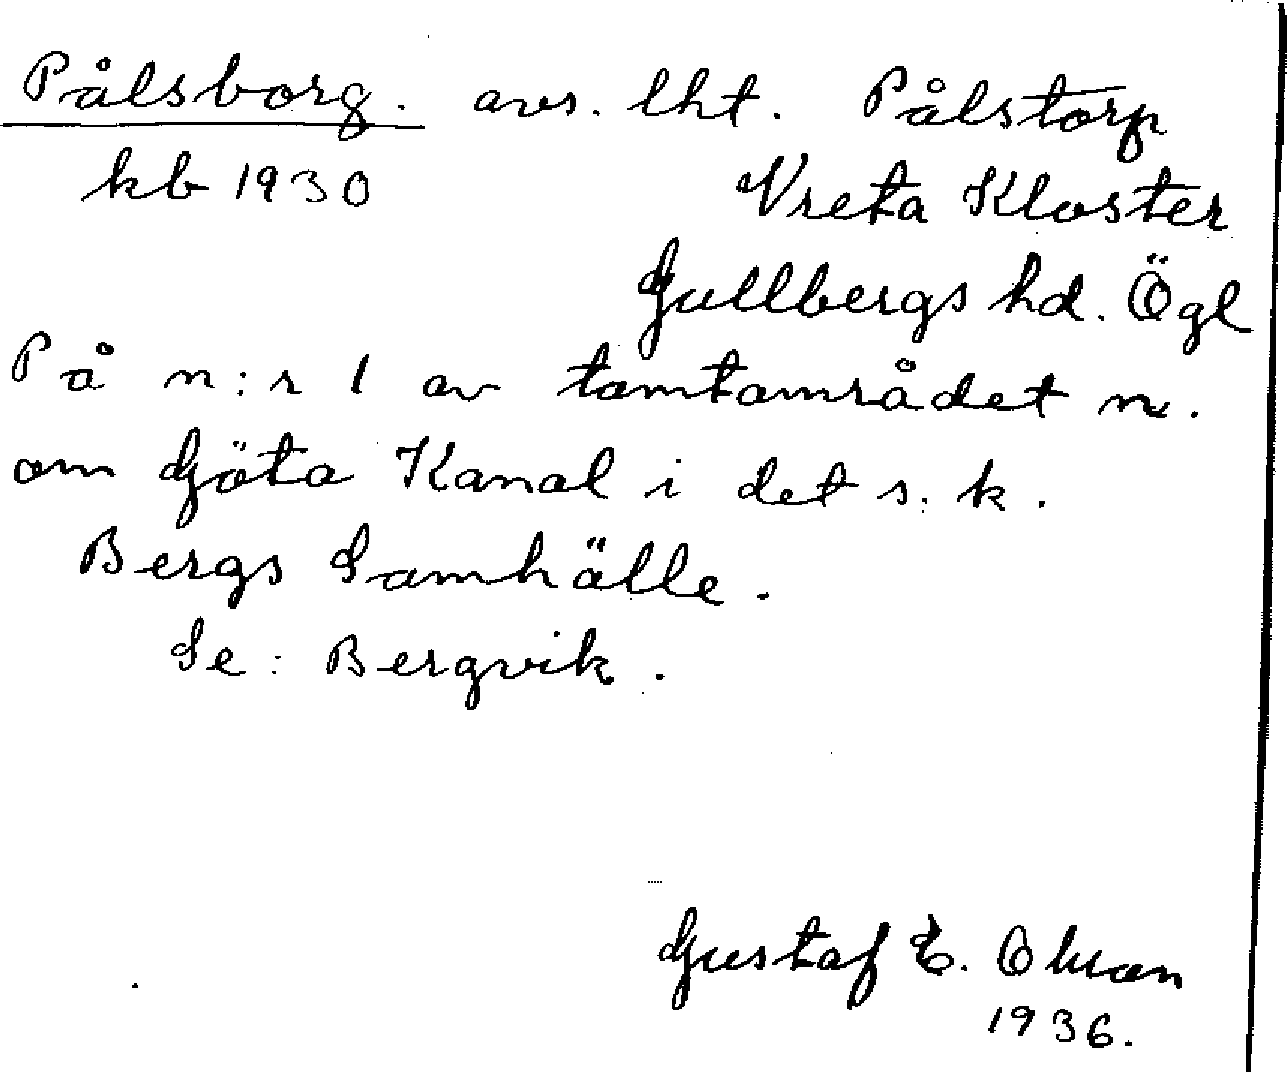 Pålsborg. avs. lht. Pålstorp
kb 1930 Vreta Kloster
Gullbergs hd. Ögl
På n:r 1 av tomtområdet n.
om Göta Kanal i det s. k.
Bergs Samhälle.
Se: Bergvik.
Gustaf E.
1936.